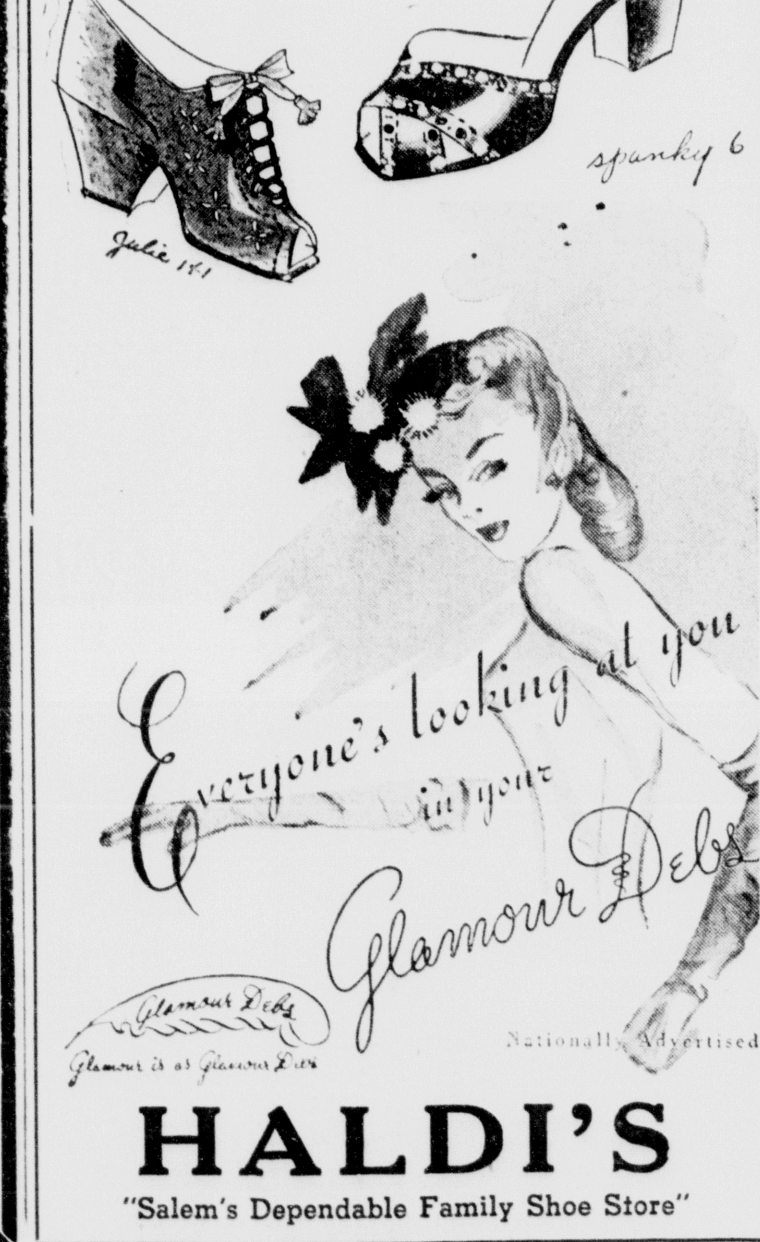 spanky 6
Julie 181
Everyone's looking at you
in your
Glamour Debs
Glamour Debs
Glamour is as Glamour Does
Nationally Advertised
HALDI'S
"Salem's Dependable Family Shoe Store"